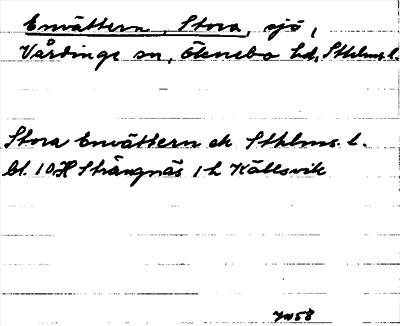 Envättern, Stora, sjö,
Vårdinge sn, Öknebo hd, Sthlms l.
Stora Envättern ek Sthlms l.
bl. 10H Strängnäs 1h Källsvik
JW58